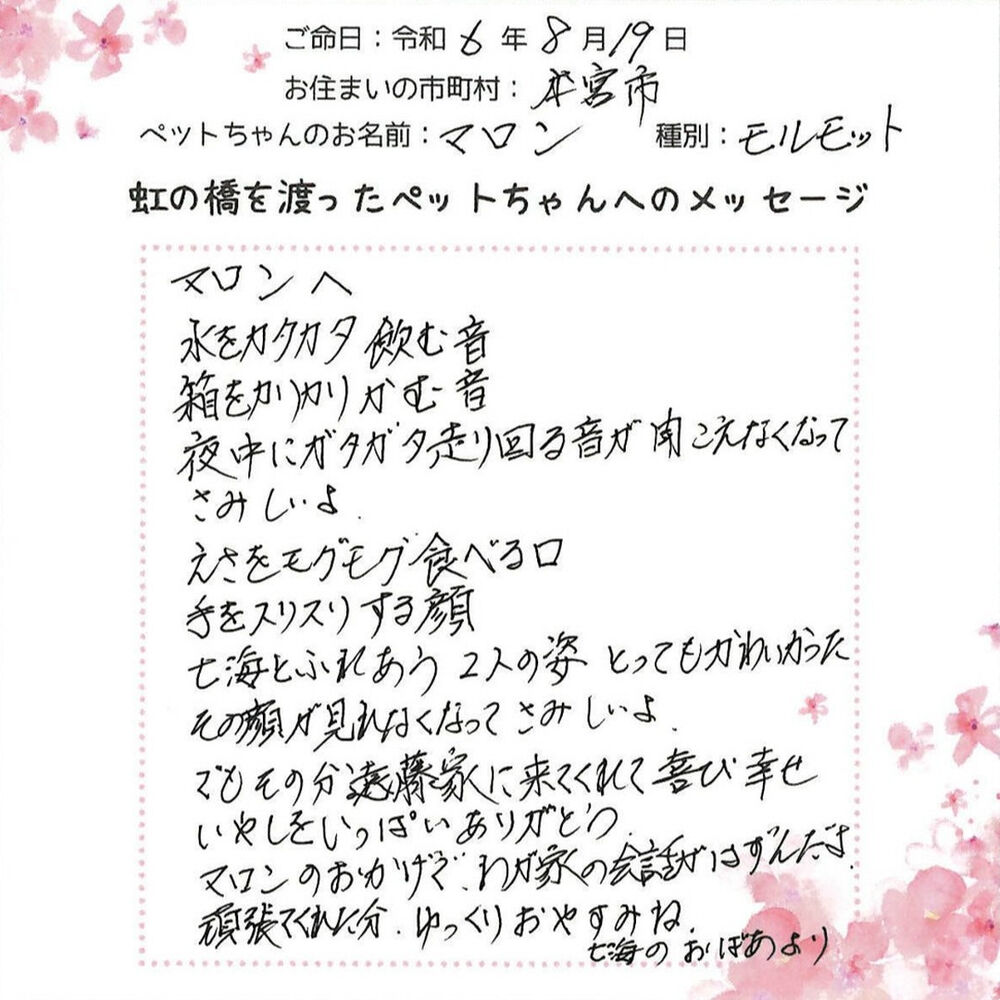 ご命日：令和6年8月19日
お住まいの市町村：本宮市
ペットちゃんのお名前：マロン 種別：モルモット
虹の橋を渡ったペットちゃんへのメッセージ
マロンへ
水をカタカタ飲む音
箱をかりかりかむ音
夜中にガタガタ走り回る音が聞こえなくなって
さみしいよ.
えさをモグモグ食べる口
手をスリスリする顔
七海とふれあう2人の姿 とってもかわいかった
その顔が見れなくなってさみしいよ.
でもその分遠藤家に来てくれて喜び幸せ
いやしをいっぱいありがとう.
マロンのおかげで.わが家の会話がはずんだよ.
頑張てくれた分.ゆっくりおやすみね.
七海のおばあより